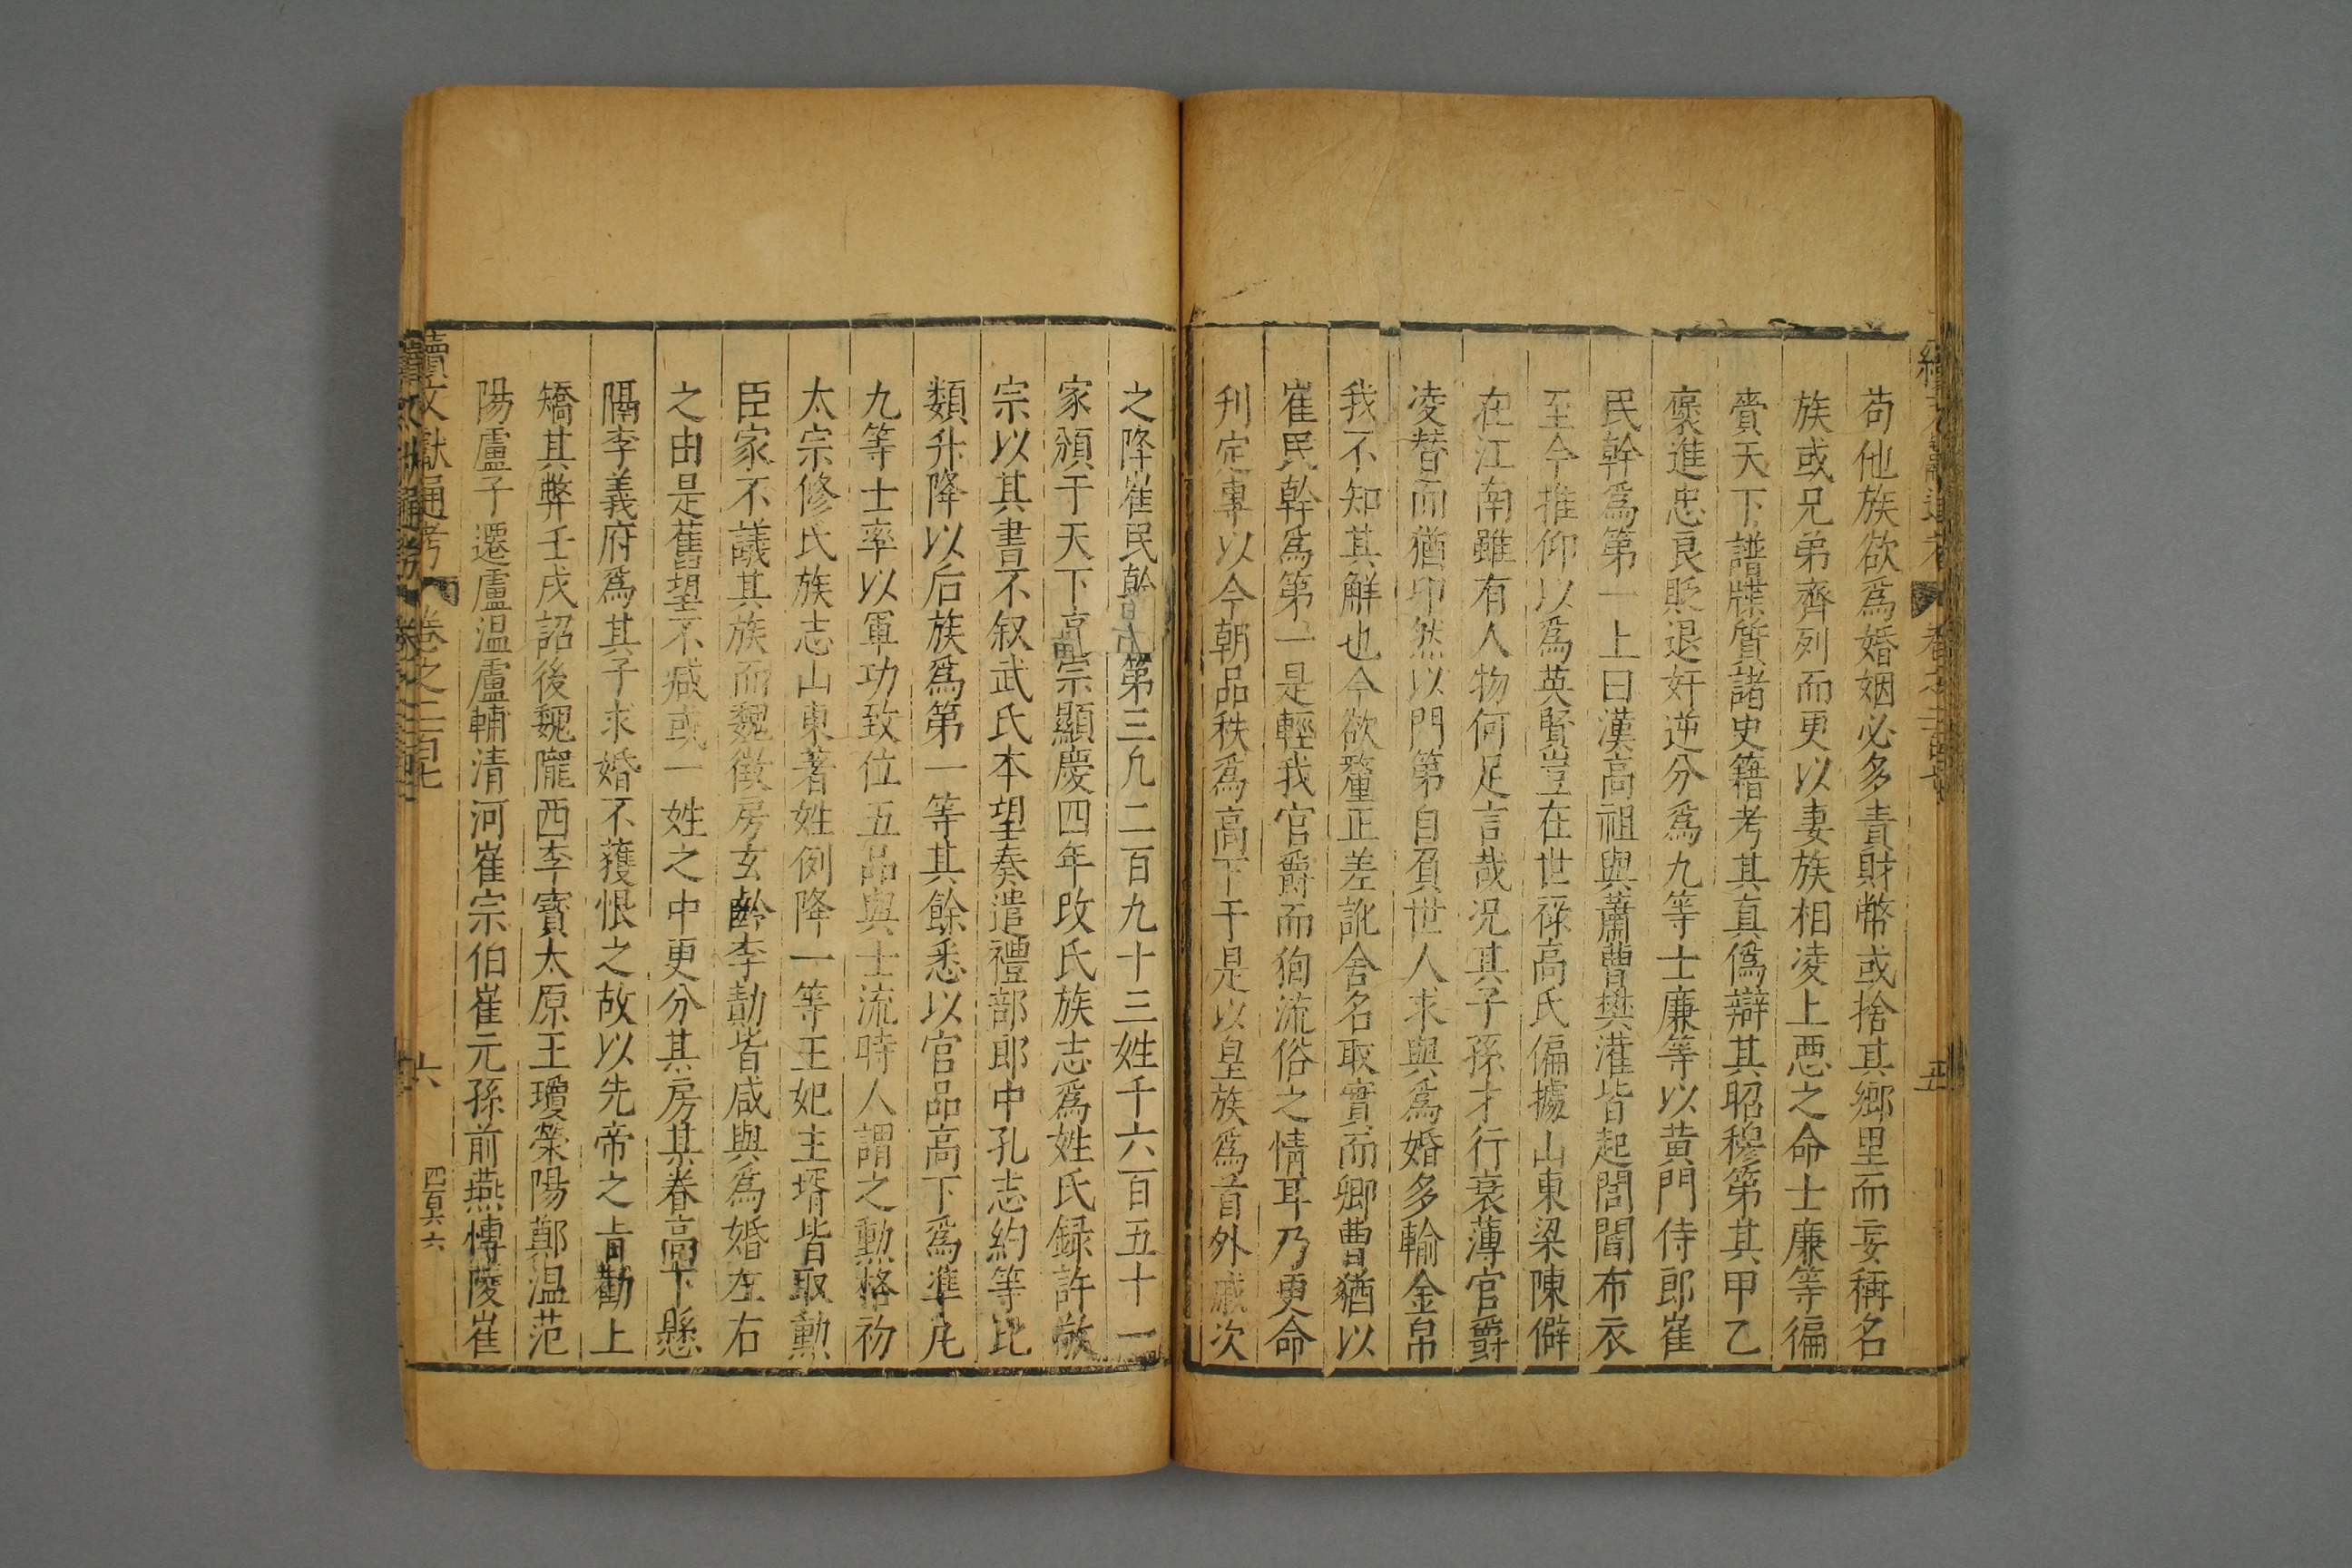 苟他族欲爲婚姻必多責財幣或捨其鄉里而妄稱名
族或兄弟齊列而更以妻族相凌上惡之命士廉等徧
責天下譜牒質諸史籍考其真僞辯其昭穆第其甲乙
褒進忠良貶退奸逆分爲九等士廉等以黄門侍郎崔
民幹爲第一上曰漢高祖與蕭曹樊灌皆起閭閻布衣
至今推仰以爲英賢豈在世祿高氏偏據山東梁陳僻
在江南雖有人物何足言哉况其子孫才行衰薄官爵
凌替而猶卬然以門第自負世人求與爲婚多輸金帛
我不知其解也今欲釐正差訛舍名取實而卿曹猶以
崔民幹爲第一是輕我官爵而狥流俗之情耳乃更命
刋定專以今朝品秩爲高下于是以皇族爲首外戚次
續文獻通考
卷之二百七
六
之降崔民幹第三凢二百九十三姓千六百五十一
家頒于天下高宗顯慶四年改氏族志爲姓氏録許敬
宗以其書不叙武氏本望奏遣禮部郎中孔志約等比
類升降以后族爲第一等其餘悉以官品高下爲準凢
九等士率以軍功致位五品與士流時人謂之勳格初
太宗修氏族志山東著姓例降一等王妃主壻皆取勲
臣家不議其族而魏徵房玄齡李勣皆咸與爲婚左右
之由是舊望不減或一姓之中更分其房某眷高下懸
隔李義府爲其子求婚不獲恨之故以先帝之旨勸上
矯其弊壬戌詔後魏隴西李寳太原王瓊榮陽鄭温范
陽盧子遷盧温盧輔清河崔宗伯崔元孫前燕博陵崔